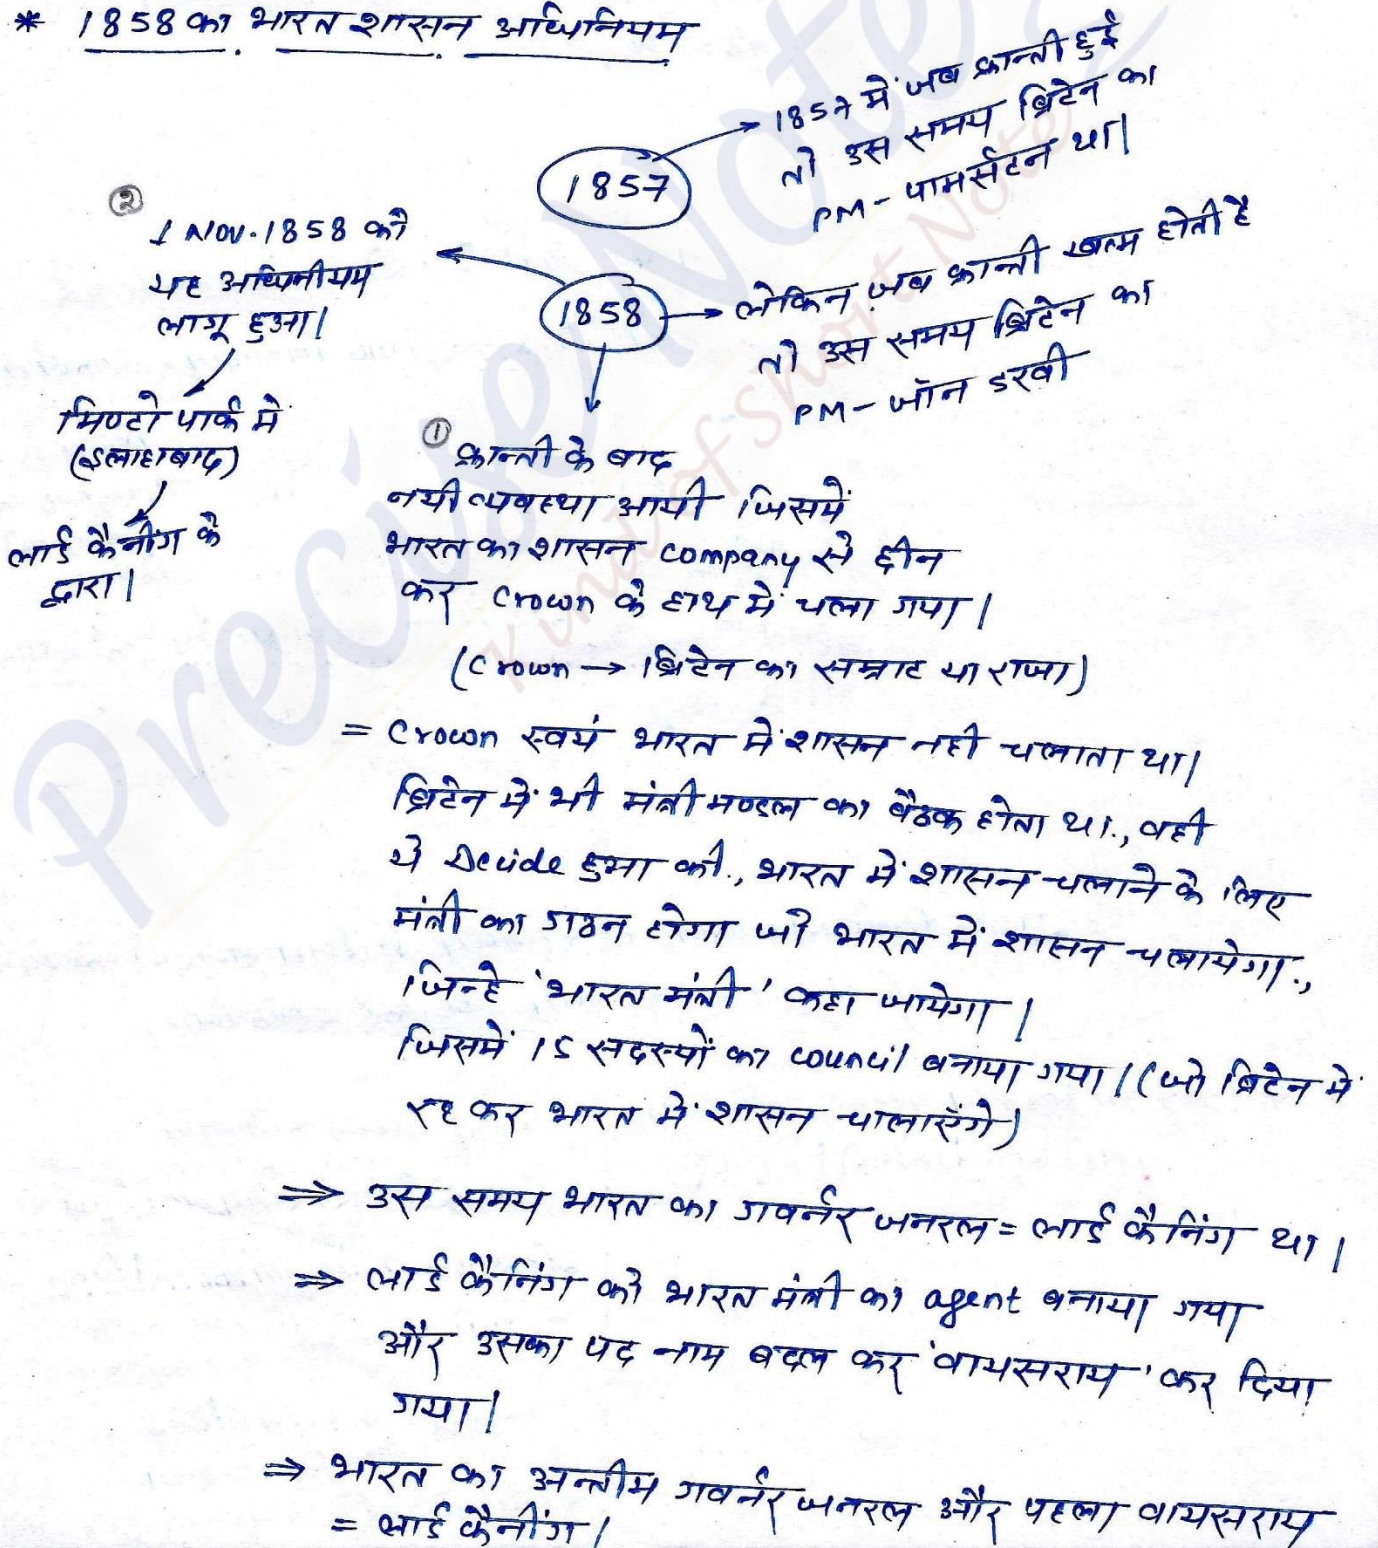 * 1858 का भारत शासन अधिनियम
1857
1857 में जब क्रान्ती हुई
तो उस समय ब्रिटेन का
PM - पामर्सटन था|
1858
लेकिन जब क्रान्ती खत्म होती है
तो उस समय ब्रिटेन का
PM - जॉन डरवी
②
1 Nov. 1858 को
यह अधिनीयम
लागू हुआ|
मिण्टो पार्क मे
(इलाहाबाद)
लार्ड कैनींग के
द्वारा|
① क्रान्ती के बाद
नयी व्यवस्था आयी जिसमें
भारत का शासन company से छीन
कर Crown के हाथ में चला गया|
(Crown → ब्रिटेन का सम्राट या राजा)
= Crown स्वयं भारत में शासन नही चलाता था|
ब्रिटेन में भी मंत्रीमण्डल का बैठक होता था., वही
ये Decide हुआ की., भारत में शासन चलाने के लिए
मंत्री का गठन होगा जो भारत में शासन चलायेगा.,
जिन्हे 'भारत मंत्री' कहा जायेगा|
जिसमें 15 सदस्यों का council बनाया गया| (जो ब्रिटेन में
रह कर भारत में शासन चालाऐंगे)
⇒ उस समय भारत का गवर्नर जनरल = लार्ड कैनिंग था|
⇒ लार्ड कैनिंग को भारत मंत्री का agent बनाया गया
और उसका पद नाम बदल कर 'वायसराय' कर दिया
गया|
⇒ भारत का अन्तीम गवर्नर जनरल और पहला वायसराय
= लार्ड कैनींग|
Precise Notes
Kind of Short Note